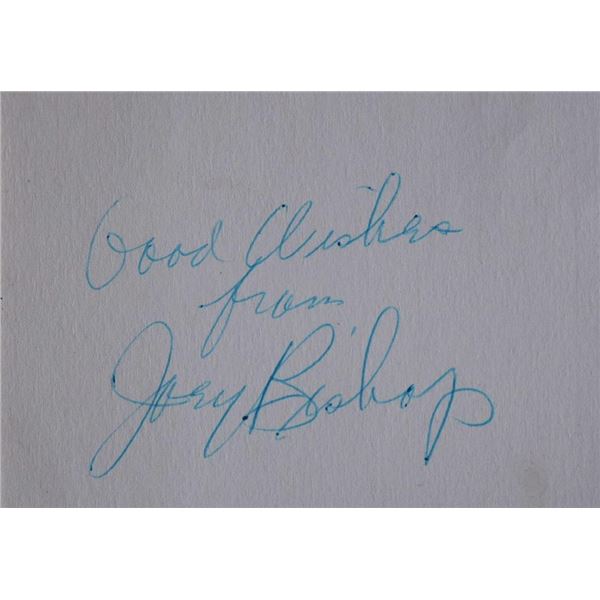 Good Wishes
from
Joey Bishop